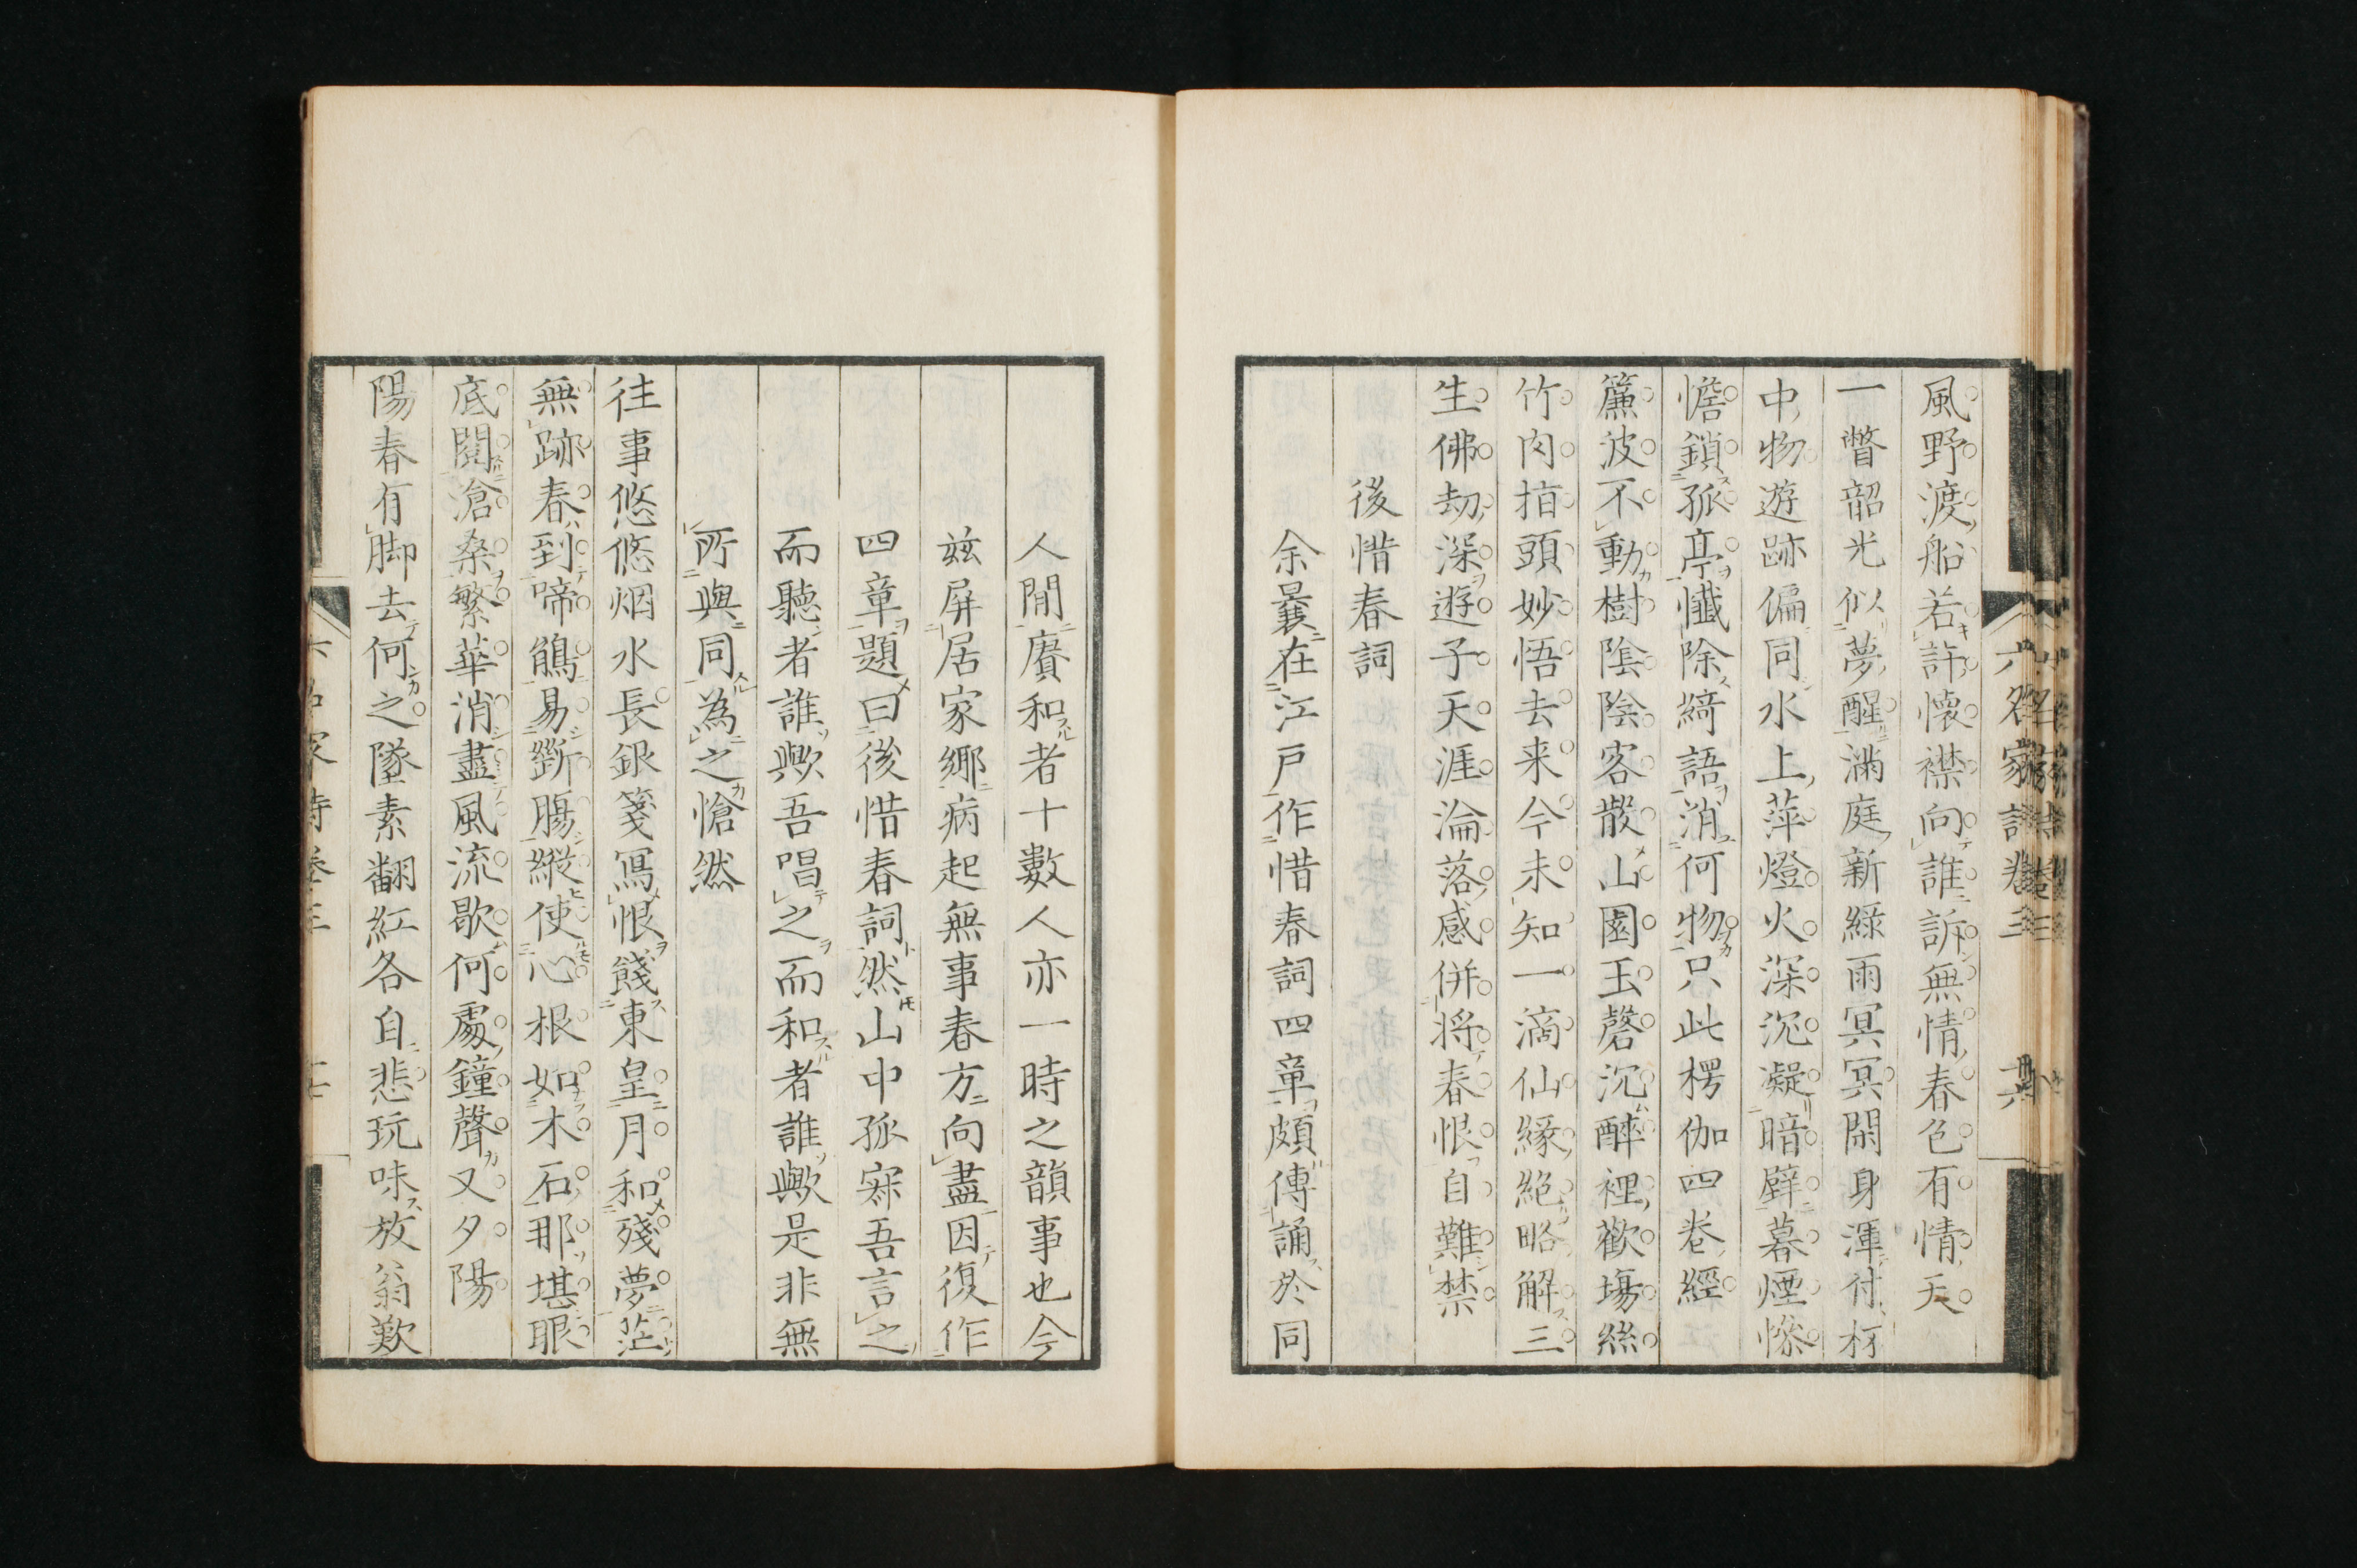 風野渡船若許懷襟向誰訴無情春色有情天
一瞥韶光似夢醒滿庭新綠雨冥冥閑身渾付杯
中物遊跡偏同水上萍燈火深沉凝暗壁暮煙慘
憺鎖孤亭懺除綺語消何物只此楞伽四卷經
簾波不動樹陰陰客散山園玉磬沉醉裡歡場絲
竹肉指頭妙悟去来今未知一滴仙緣絕略解三
生佛劫深遊子天涯淪落感併将春恨自難禁
後惜春詞
余曩在江戸作惜春詞四章頗傳誦於同
人間賡和者十數人亦一時之韻事也今
玆屏居家鄉病起無事春方向盡因復作
四章題曰後惜春詞然山中孤寂吾言之
而聽者誰歟吾唱之而和者誰歟是非無
所與同為之愴然
往事悠悠烟水長銀箋寫恨餞東皇月和殘夢茫
無跡春到啼鵑易斷腸縱使心根如木石那堪眼
底閲滄桑繁華消盡風流歇何處鐘聲又夕陽
陽春有脚去何之墜素翻紅各自悲玩味放翁歎